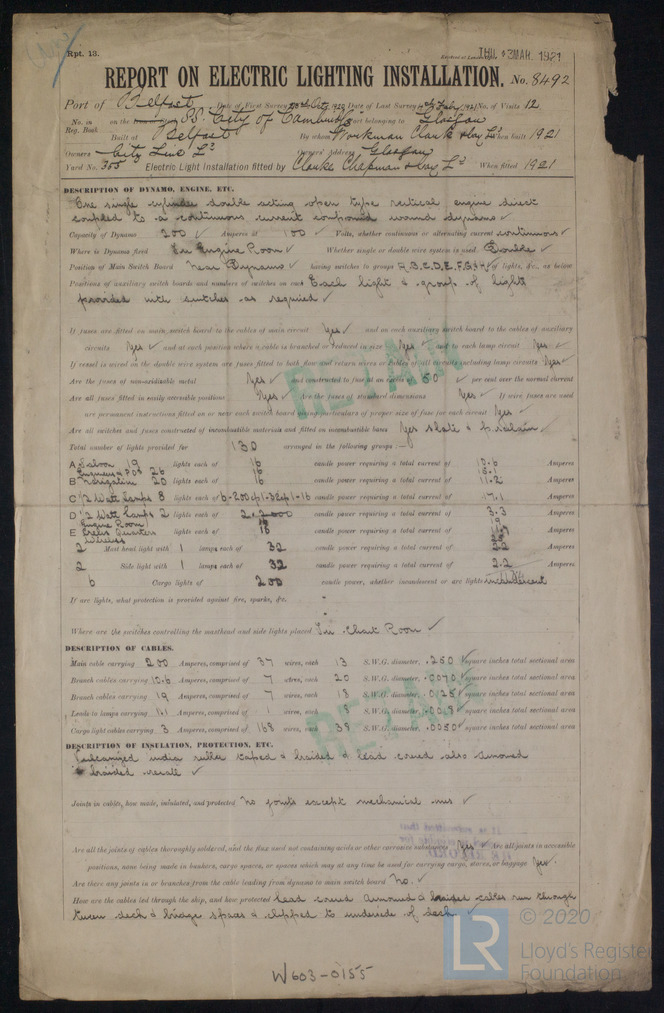 Rpt. 13.
THU. 3 MAR. 1921
REPORT ON ELECTRIC LIGHTING INSTALLATION. No. 8492
Port of Belfast Date of First Survey Date of Last Survey No. of Visits 12
No. in Reg. Book on the S.S. City of Port belonging to Glasgow
Built at Belfast By whom Workman Clark & Coy Ld When built 1921
Owners City Line Ld Owners' Address Glasgow
Yard No. 355 Electric Light Installation fitted by Clarke Chapman & Coy Ld When fitted 1921
DESCRIPTION OF DYNAMO, ENGINE, ETC.
One single cylinder double acting open type vertical engine direct
coupled to a continuous current compound wound dynamo ✓
Capacity of Dynamo 200 ✓ Amperes at 100 ✓ Volts, whether continuous or alternating current continuous ✓
Where is Dynamo fixed In Engine Room ✓ Whether single or double wire system is used Double ✓
Position of Main Switch Board near Dynamo ✓ having switches to groups A, B, C, D, E, F, G & H of lights, &c., as below
Positions of auxiliary switch boards and numbers of switches on each Each light & group of lights
provided with switches as required ✓
If fuses are fitted on main switch board to the cables of main circuit Yes ✓ and on each auxiliary switch board to the cables of auxiliary
circuits Yes ✓ and at each position where a cable is branched or reduced in size Yes ✓ and to each lamp circuit Yes ✓
If vessel is wired on the double wire system are fuses fitted to both flow and return wires or cables of all circuits including lamp circuits Yes ✓
Are the fuses of non-oxidizable metal Yes ✓ and constructed to fuse at an excess of 50 ✓ per cent over the normal current
Are all fuses fitted in easily accessible positions Yes ✓ Are the fuses of standard dimensions Yes ✓ If wire fuses are used
are permanent instructions fitted on or near each switch board giving particulars of proper size of fuse for each circuit Yes ✓
Are all switches and fuses constructed of incombustible materials and fitted on incombustible bases Yes slate & porcelain ✓
RETAIN
Total number of lights provided for 130 arranged in the following groups :—
A Saloon 19 lights each of 16 candle power requiring a total current of 10.6 Amperes
26 16
B Navigation 20 lights each of 16 candle power requiring a total current of 11.2 Amperes
C ½ Watt Lamps 8 lights each of 6-200 cp 1-32 cp 1-16 candle power requiring a total current of 17.1 Amperes
D ½ Watt Lamps 2 lights each of candle power requiring a total current of 3.3 Amperes
Engine Room
E Crews Quarters lights each of 16 candle power requiring a total current of Amperes
Wireless
2 Mast head light with 1 lamps each of 32 candle power requiring a total current of 2.2 Amperes
2 Side light with 1 lamps each of 32 candle power requiring a total current of 2.2 Amperes
6 Cargo lights of 200 candle power, whether incandescent or arc lights incandescent
If arc lights, what protection is provided against fire, sparks, &c.
Where are the switches controlling the masthead and side lights placed In Chart Room ✓
DESCRIPTION OF CABLES.
Main cable carrying 200 Amperes, comprised of 37 wires, each 13 S.W.G. diameter, .250 square inches total sectional area
Branch cables carrying 10.6 Amperes, comprised of 7 wires, each 20 S.W.G. diameter, .0070 square inches total sectional area
Branch cables carrying 19 Amperes, comprised of 7 wires, each 18 S.W.G. diameter, .0125 square inches total sectional area
Leads to lamps carrying 1.1 Amperes, comprised of 1 wires, each 18 S.W.G. diameter, .0018 square inches total sectional area
Cargo light cables carrying 3 Amperes, comprised of 168 wires, each 38 S.W.G. diameter, .0050 square inches total sectional area
RETAIN
DESCRIPTION OF INSULATION, PROTECTION, ETC.
Vulcanized india rubber taped & braided & lead covered also armoured
& braided overall ✓
Joints in cables, how made, insulated, and protected No joints except mechanical ones ✓
Are all the joints of cables thoroughly soldered, and the flux used not containing acids or other corrosive substances Yes ✓ Are all joints in accessible
positions, none being made in bunkers, cargo spaces, or spaces which may at any time be used for carrying cargo, stores, or baggage Yes.
Are there any joints in or branches from the cable leading from dynamo to main switch board No. ✓
How are the cables led through the ship, and how protected lead covered armoured & braided cables run through
tween deck & bridge spaces & clipped to underside of deck ✓
W603-0155
LR © 2020
Lloyd's Register
Foundation